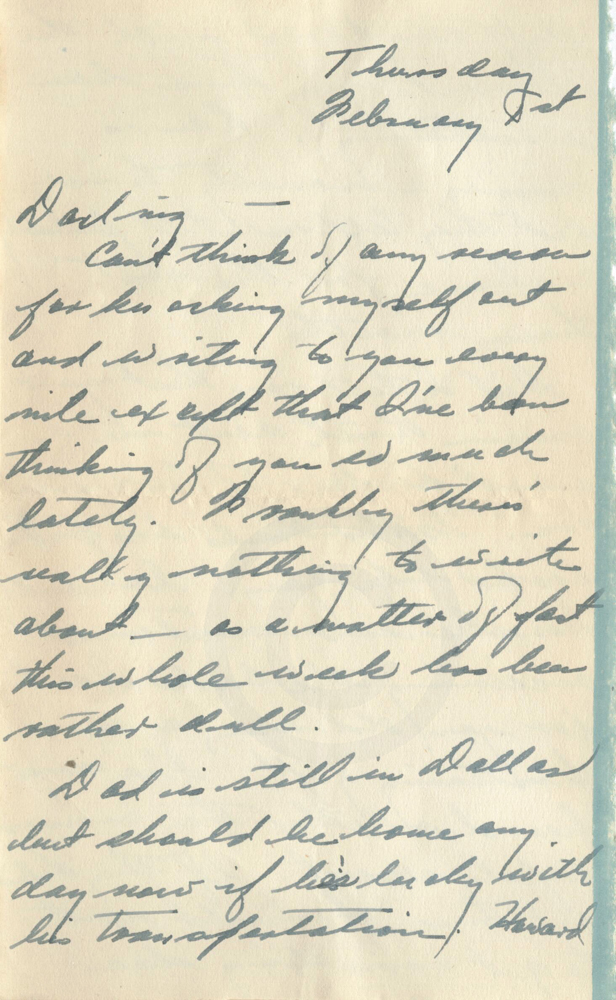 Thursday
February 1st
Darling —
Can't think of any reason
for his asking myself out
and writing to you every
nite except that I've been
thinking of you so much
lately. Frankly there's
really nothing to write
about — as a matter of fact
this whole week has been
rather dull.
Dad is still in Dallas
but should be home any
day now if he's lucky with
his transportation. Howard